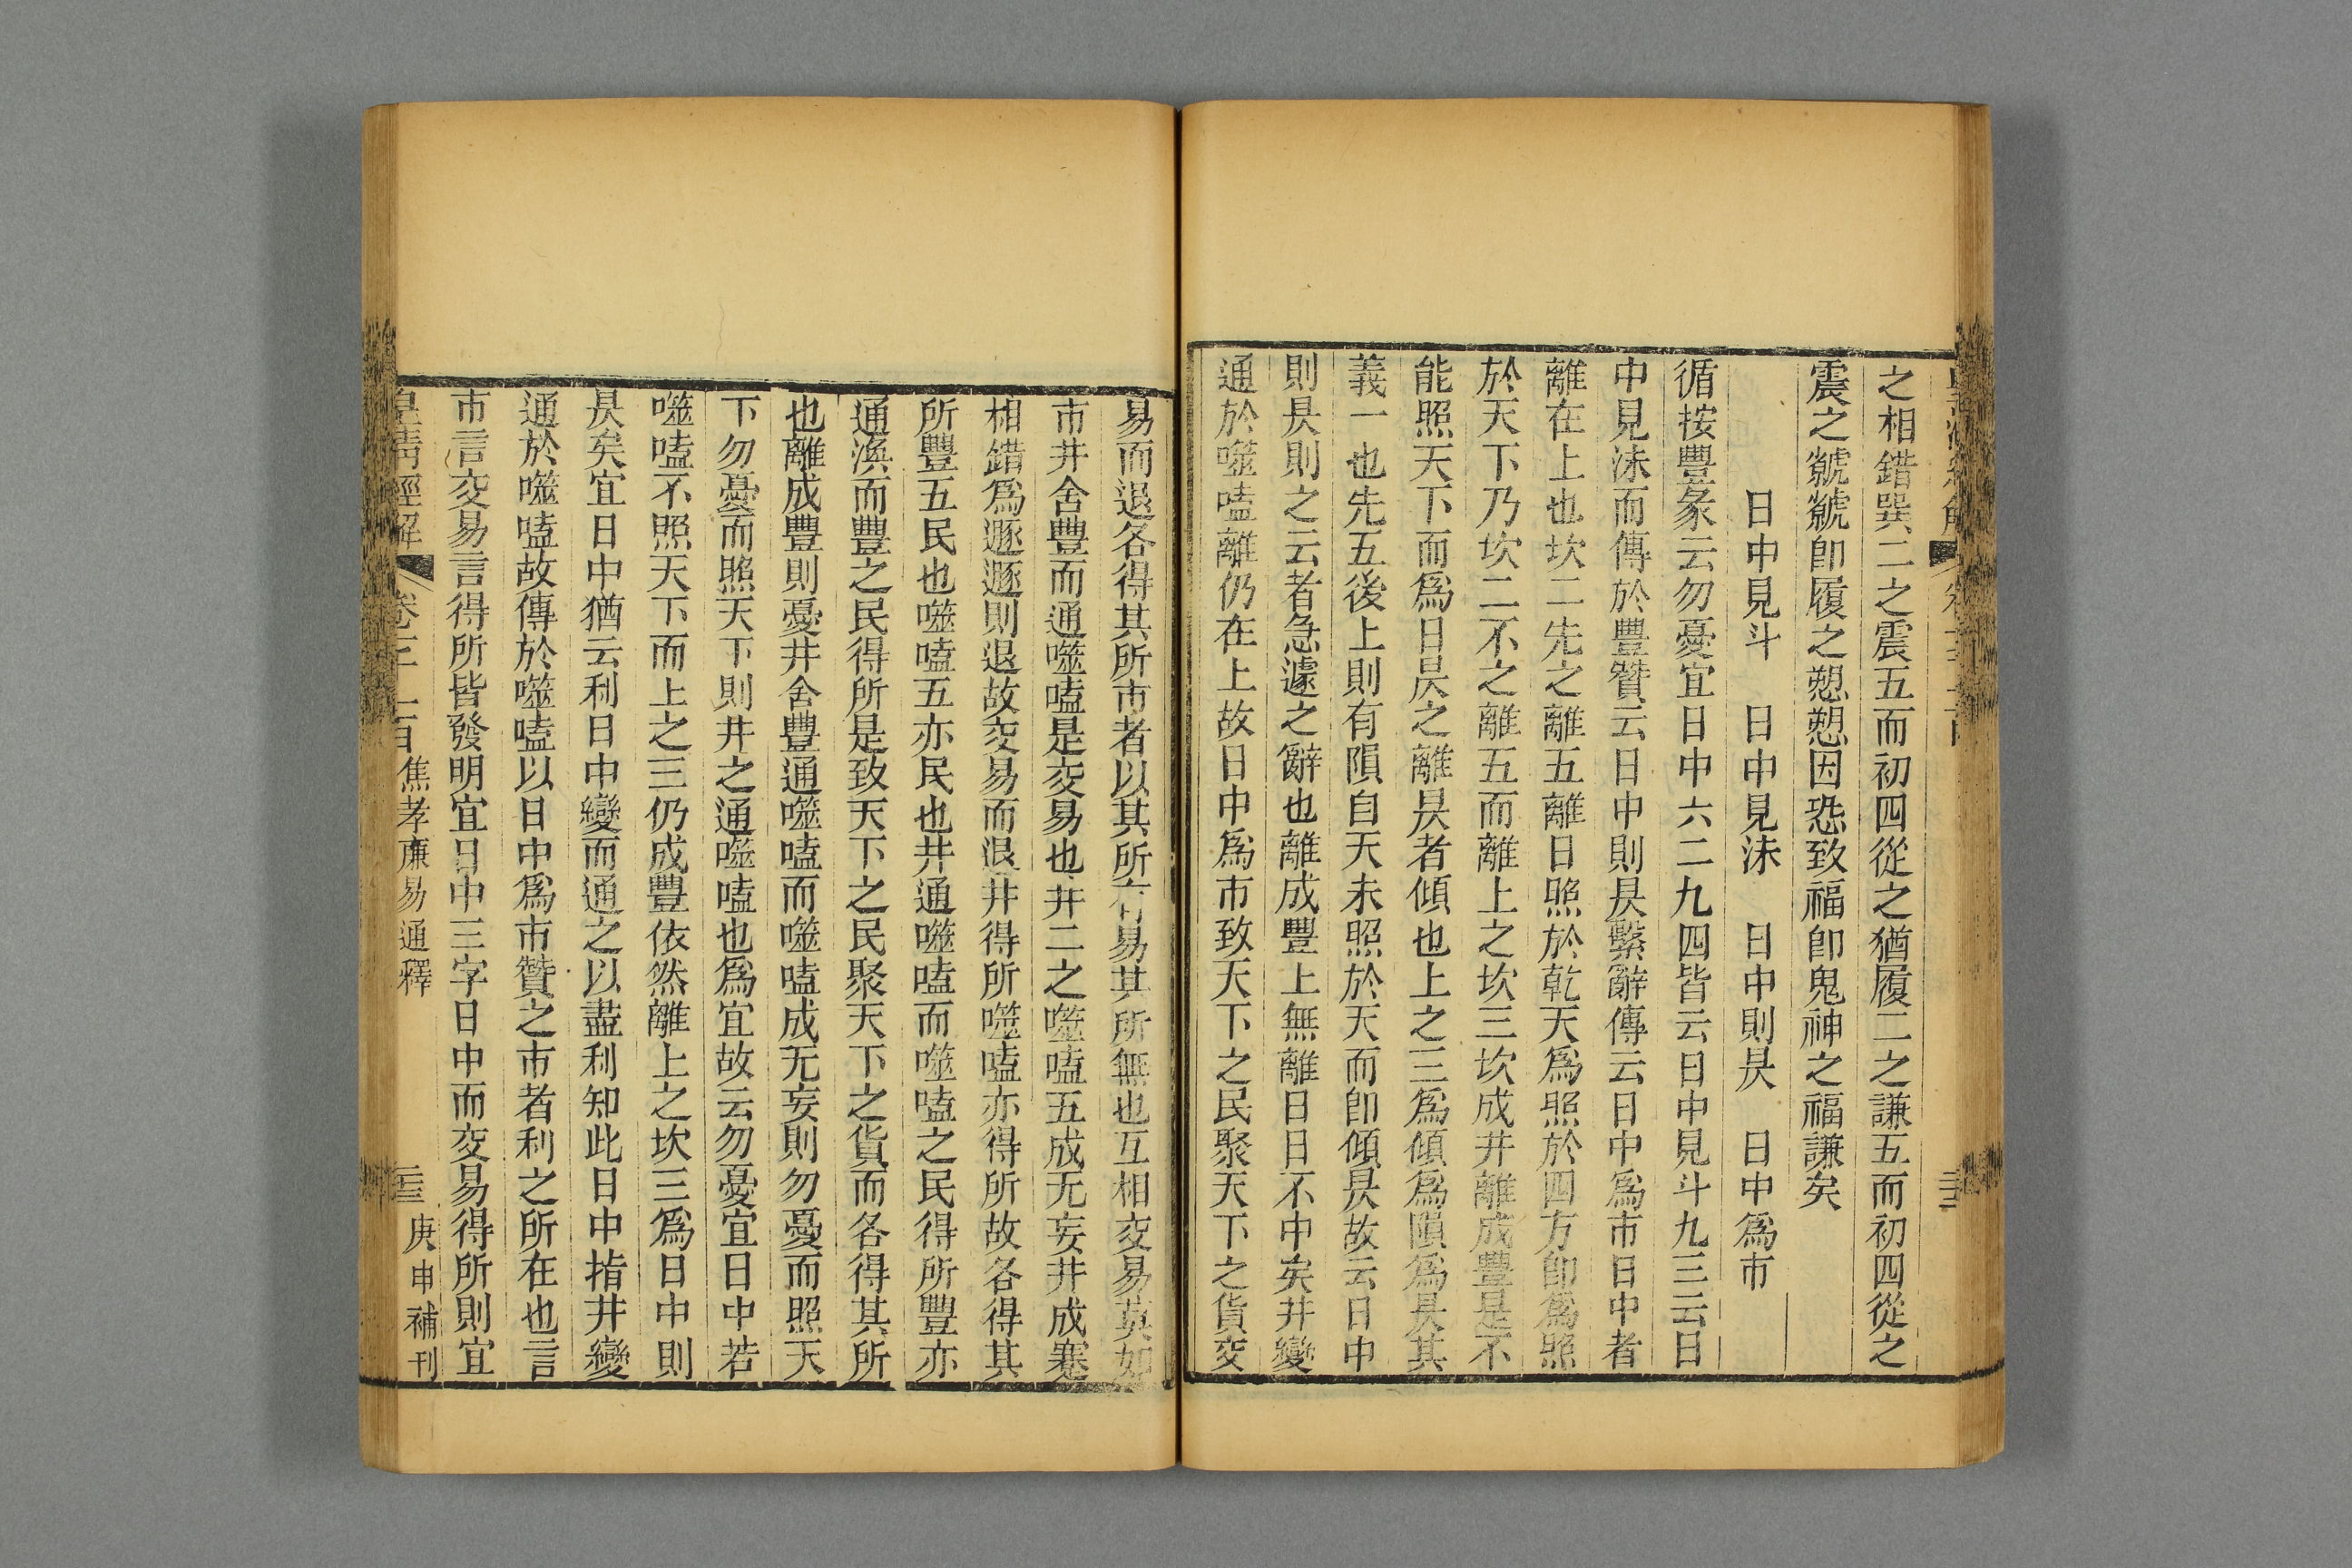 之相錯巽二之震五而初四從之猶履二之謙五而初四從之
震之虩虩卽履之愬愬因恐致福卽鬼神之福謙矣
日中見斗　日中見沬　日中則昃　日中爲市
循按豐彖云勿憂宜日中六二九四皆云日中見斗九三云日
中見沬而傳於豐贊云日中則昃繫辭傳云日中爲市日中者
離在上也坎二先之離五離日照於乾天爲照於四方卽爲照
於天下乃坎二不之離五而離上之坎三坎成井離成豐是不
能照天下而爲日昃之離昃者傾也上之三爲傾爲隕爲昃其
義一也先五後上則有隕自天未照於天而卽傾昃故云日中
則昃則之云者急遽之辭也離成豐上無離日日不中矣井變
通於噬嗑離仍在上故日中爲市致天下之民聚天下之貨交
易而退各得其所市者以其所有易其所無也互相交易莫如
市井舍豐而通噬嗑是交易也井二之噬嗑五成无妄井成蹇
相錯爲遯遯則退故交易而退井得所噬嗑亦得所故各得其
所豐五民也噬嗑五亦民也井通噬嗑而噬嗑之民得所豐亦
通渙而豐之民得所是致天下之民聚天下之貨而各得其所
也離成豐則憂井舍豐通噬嗑而噬嗑成无妄則勿憂而照天
下勿憂而照天下則井之通噬嗑也爲宜故云勿憂宜日中若
噬嗑不照天下而上之三仍成豐依然離上之坎三爲日中則
昃矣宜日中猶云利日中變而通之以盡利知此日中指井變
通於噬嗑故傳於噬嗑以日中爲市贊之市者利之所在也言
市言交易言得所皆發明宜日中三字日中而交易得所則宜
皇清經解　卷三百　焦孝廉易通釋　三　庚申補刊